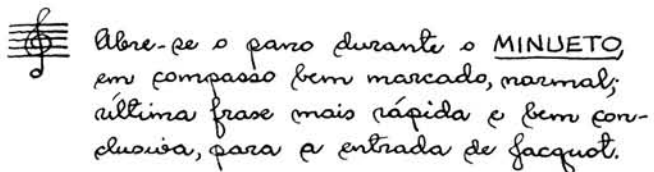 Abre-se o pano durante o MINUETO,
em compasso bem marcado, normal;
última frase mais rápida e bem con-
clusiva, para a entrada de Jacquot.